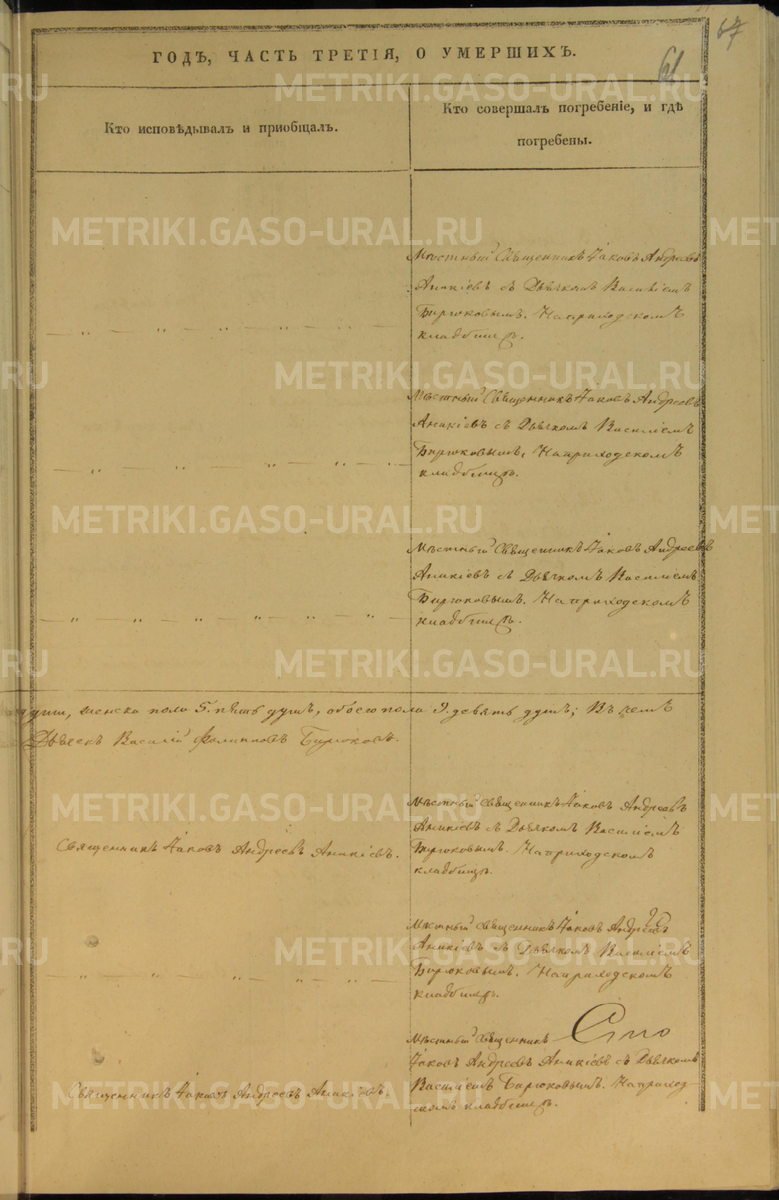 67
61
ГОДЪ, ЧАСТЬ ТРЕТІЯ, О УМЕРШИХЪ.
Кто исповѣдывалъ и приобщалъ.
Кто совершалъ погребеніе, и гдѣ
погребены.
METRIKI.GASO-URAL.RU
Мѣстный Священникъ Іаковъ Андреевъ
Аникіевъ съ Дьячкомъ Василіемъ
Бирюковымъ. На приходскомъ
кладбищѣ.
Мѣстный Священникъ Іаковъ Андреевъ
Аникіевъ съ Дьячкомъ Василіемъ
Бирюковымъ, На приходскомъ
кладбищѣ.
Мѣстный Священникъ Іаковъ Андреевъ
Аникіевъ съ Дьячкомъ Василіемъ
Бирюковымъ. На приходскомъ
кладбищѣ.
души, женска пола 5. пять душъ, обоего пола 9. девять душъ; Въ чемъ
Дьячекъ Василій Бирюковъ.
Священникъ Іаковъ Андреевъ Аникіевъ.
Мѣстный священникъ Іаковъ Андреевъ
Аникіевъ съ Дьячкомъ Василіемъ
Бирюковымъ. На приходскомъ
кладбищѣ.
Мѣстный священникъ Іаковъ Андреевъ
Аникіевъ съ Дьячкомъ Василіемъ
Бирюковымъ. На приходскомъ
кладбищѣ.
Священникъ Іаковъ Андреевъ Аникіевъ.
Мѣстный Священникъ
Іаковъ Андреевъ Аникіевъ съ Дьячкомъ
Василіемъ Бирюковымъ. На приход
скомъ кладбищѣ.